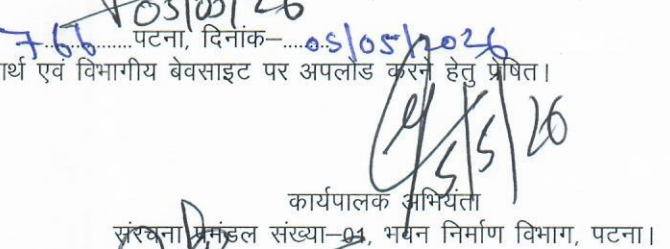 05/05/26
766.......पटना, दिनांक–......05/05/2026
ार्थ एवं विभागीय बेवसाइट पर अपलोड करने हेतु प्रेषित।
5/5/26
कार्यपालक अभियंता
संरचना प्रमंडल संख्या–01, भवन निर्माण विभाग, पटना।